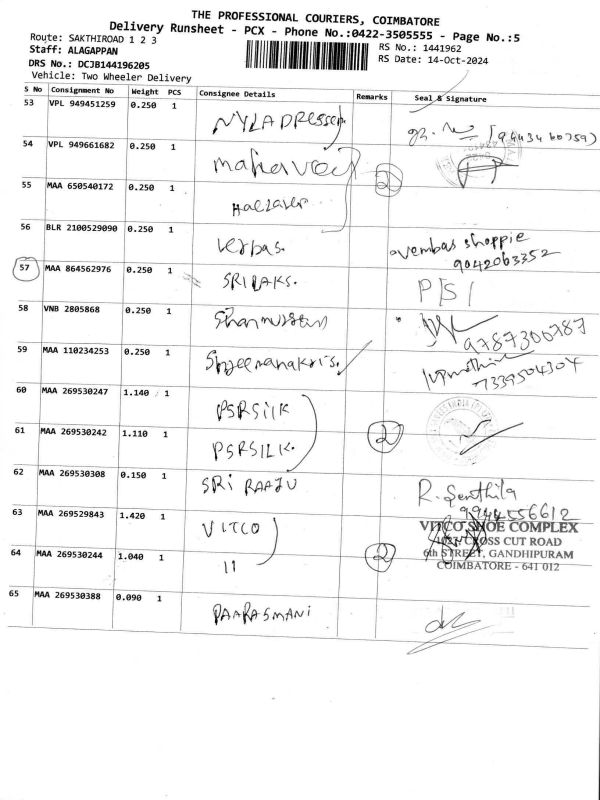 THE PROFESSIONAL COURIERS, COIMBATORE
Delivery Runsheet - PCX - Phone No.:0422-3505555 - Page No.:5
Route: SAKTHIROAD 1 2 3
RS No.: 1441962
Staff: ALAGAPPAN
RS Date: 14-Oct-2024
DRS No.: DCJB144196205
Vehicle: Two Wheeler Delivery
S No Consignment No Weight PCS Consignee Details Remarks Seal & Signature
53 VPL 949451259 0.250 1
54 VPL 949661682 0.250 1 2
55 MAA 650540172 0.250 1
56 BLR 2100529090 0.250 1 verbas. vembas shoppie
9042063352
57 MAA 864562976 0.250 1 SRILAKS. PSI
58 VNB 2805868 0.250 1 9787300787
59 MAA 110234253 0.250 1 7339504304
60 MAA 269530247 1.140 1 PSRSILK
61 MAA 269530242 1.110 1 PSRSILK. 2
62 MAA 269530308 0.150 1 SRI RAAJU R. Senthila
9944556612
63 MAA 269529843 1.420 1 VITCO VITCO SHOE COMPLEX
CROSS CUT ROAD
64 MAA 269530244 1.040 1 11 2 6th STREET, GANDHIPURAM
COIMBATORE - 641 012
65 MAA 269530388 0.090 1 PAARASMANI